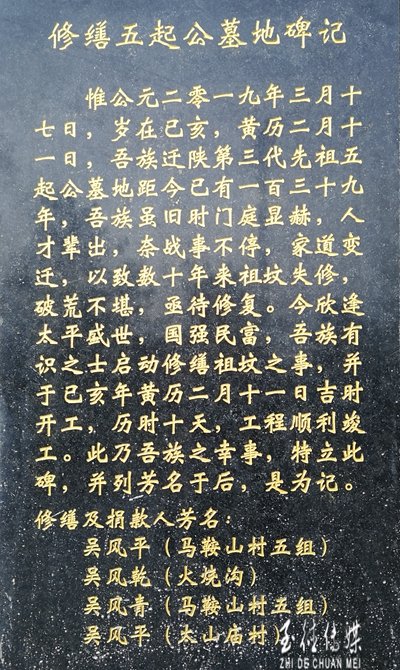 修缮五起公墓地碑记
惟公元二零一九年三月十
七日，岁在已亥，黄历二月十
一日，吾族迁陕第三代先祖五
起公墓地距今已有一百三十九
年，吾族虽旧时门庭显赫，人
才辈出，奈战事不停，家道变
迁，以致数十年来祖坟失修，
破荒不堪，亟待修复。今欣逢
太平盛世，国强民富，吾族有
识之士启动修缮祖坟之事，并
于已亥年黄历二月十一日吉时
开工，历时十天，工程顺利竣
工。此乃吾族之幸事，特立此
碑，并列芳名于后，是为记。
修缮及捐款人芳名：
吴风平（马鞍山村五组）
吴风乾（火烧沟）
吴风青（马鞍山村五组）
吴风平（太山庙村）
至德传媒
ZHI DE CHUAN MEI